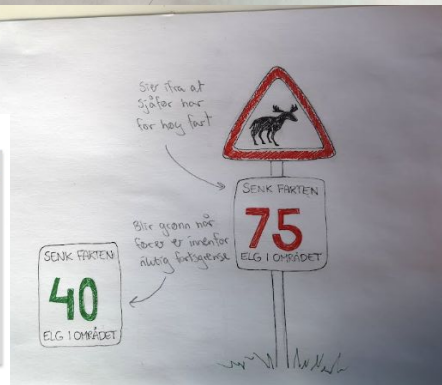 Sier ifra at
sjåfør har
for høy fart
SENK FARTEN
75
ELG I OMRÅDET
Blir grønn når
fører er innenfor
riktig fartsgrense
SENK FARTEN
40
ELG I OMRÅDET